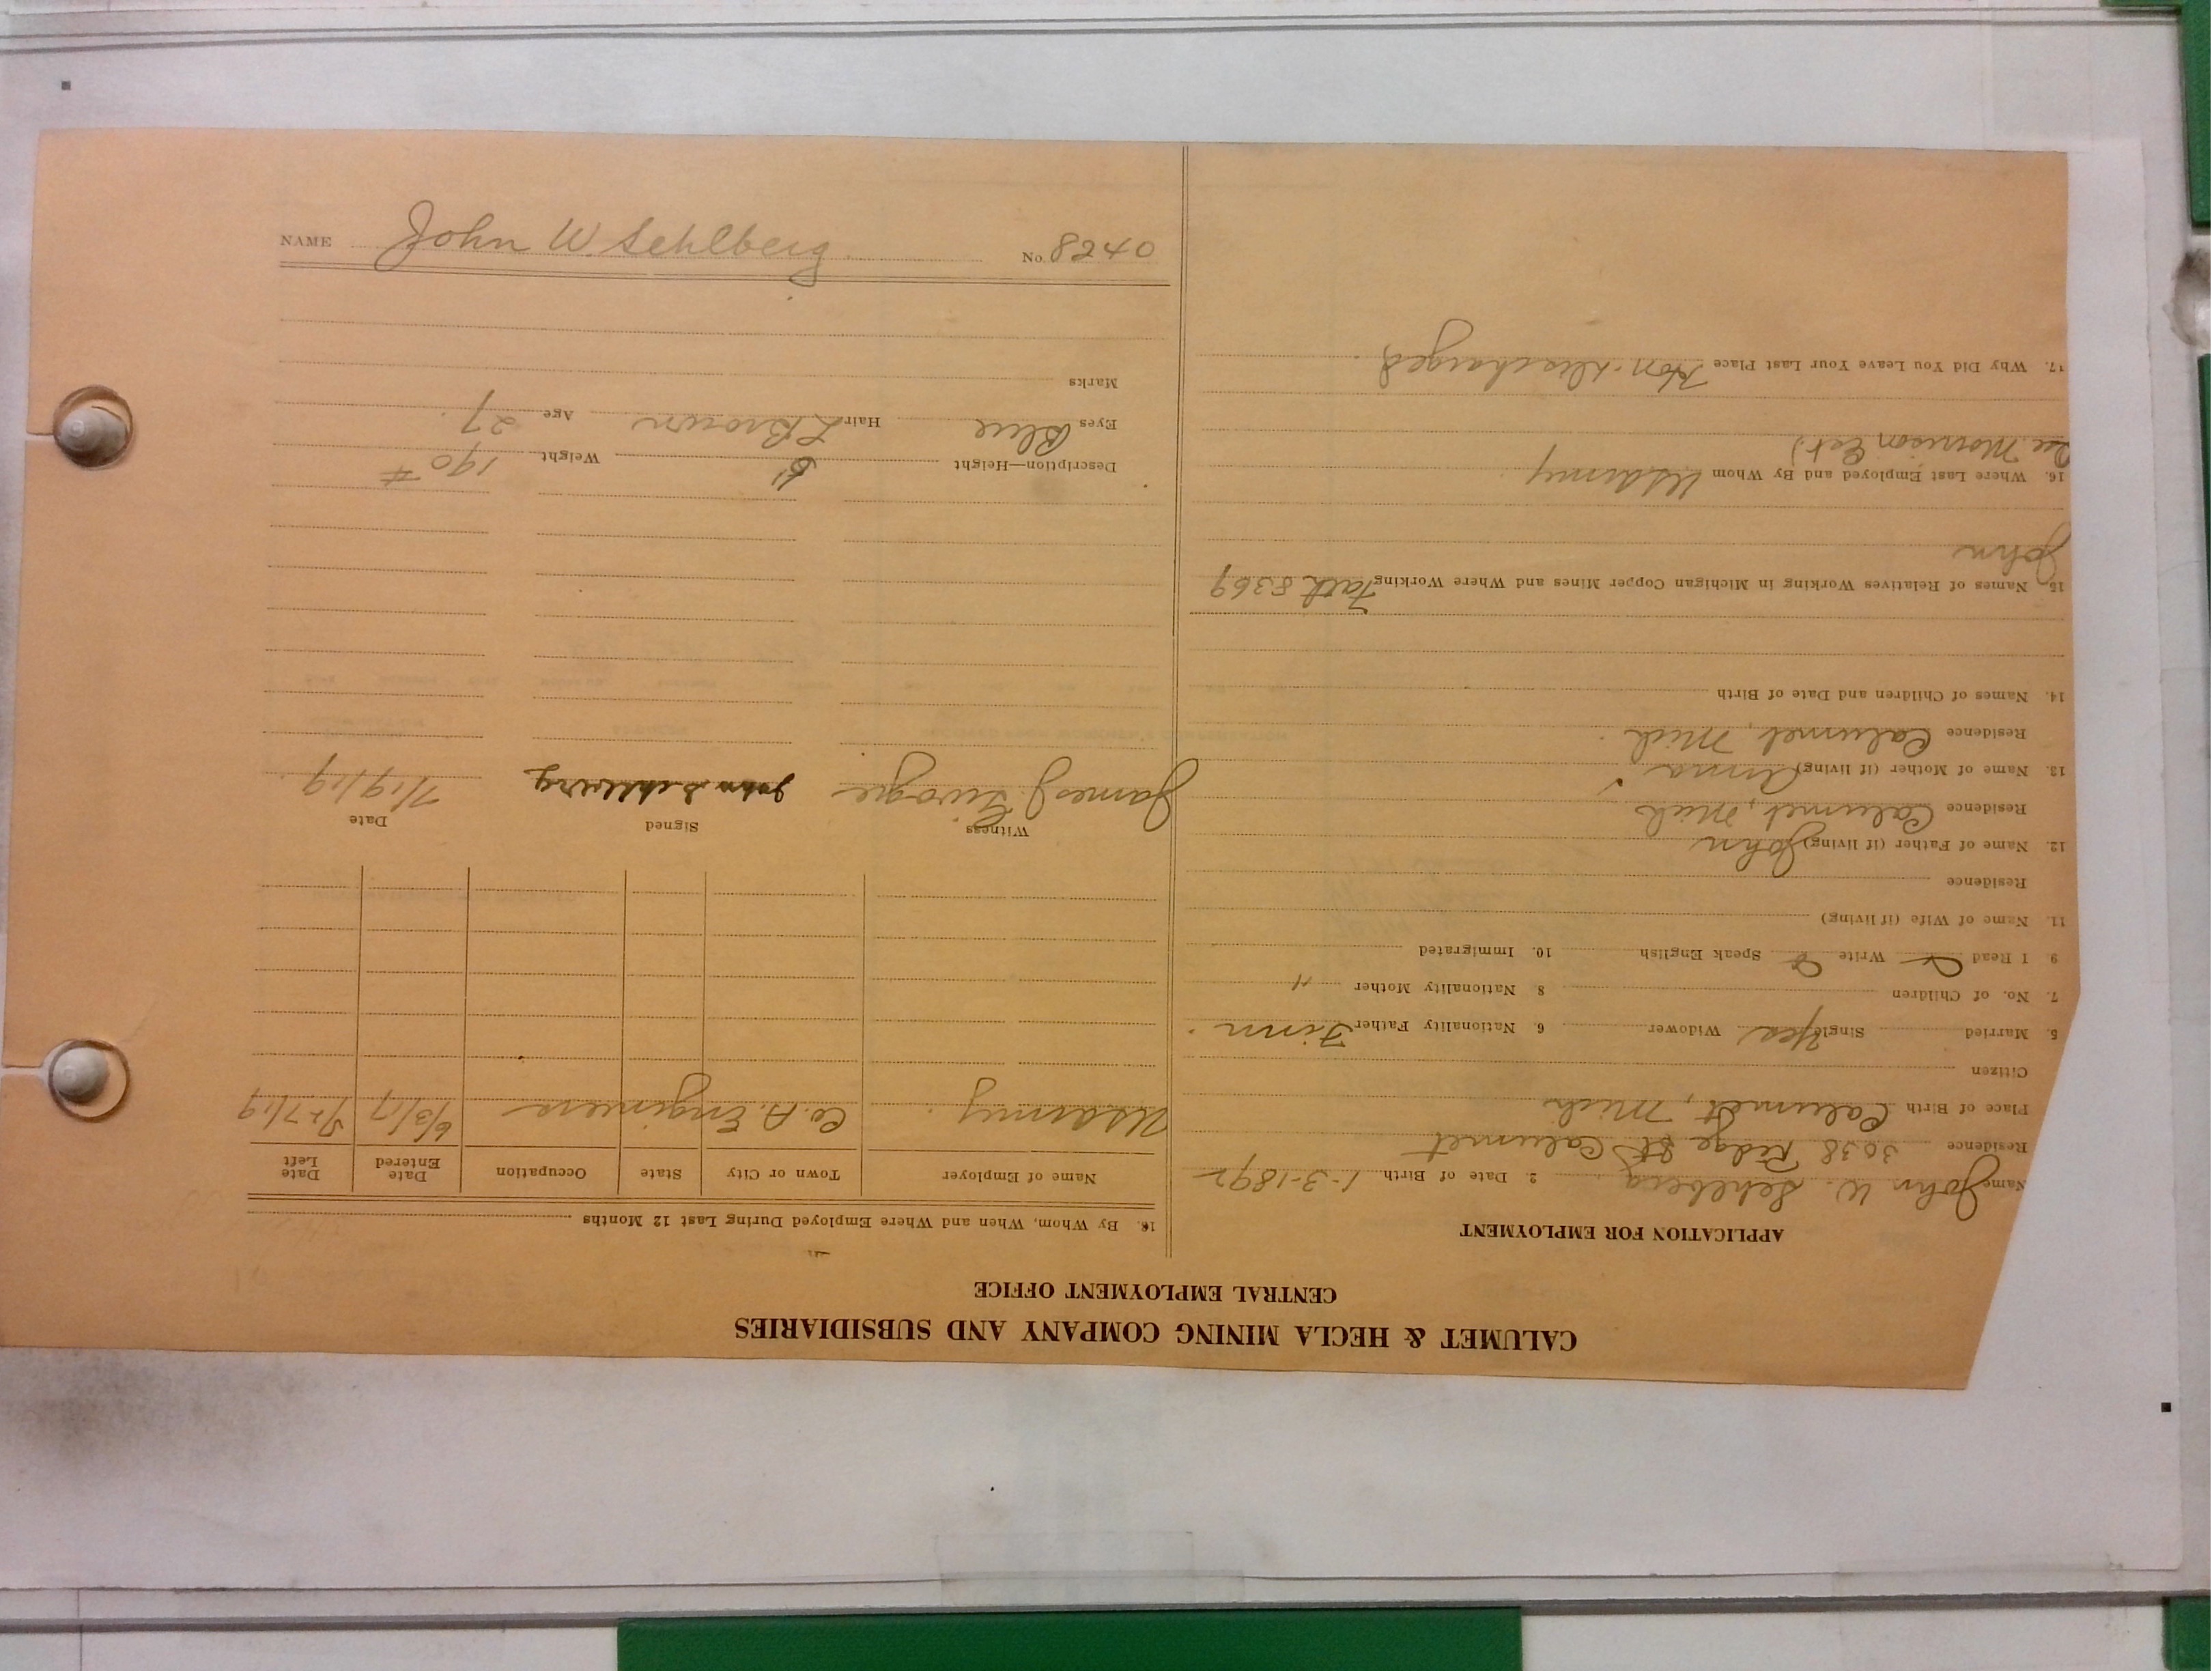 CALUMET & HECLA MINING COMPANY AND SUBSIDIARIES
CENTRAL EMPLOYMENT OFFICE
APPLICATION FOR EMPLOYMENT
Name John W. Sehlberg 2. Date of Birth 1-3-1892
Residence 3038 Ridge St Calumet
Place of Birth Calumet, Mich
Citizen
5. Married Single Yes Widower 6. Nationality Father Finn
7. No. of Children 8. Nationality Mother "
9. I Read Write Speak English 10. Immigrated
11. Name of Wife (if living)
Residence
12. Name of Father (if living) John
Residence Calumet, Mich
13. Name of Mother (if living) Anna
Residence Calumet, Mich.
14. Names of Children and Date of Birth
15. Names of Relatives Working in Michigan Copper Mines and Where Working Fath 8369
John
16. Where Last Employed and By Whom USArmy
See Morrison
17. Why Did You Leave Your Last Place Hon. Discharged
16. By Whom, When and Where Employed During Last 12 Months
Name of Employer Town or City State Occupation Date Entered Date Left
USArmy. Co. A. Engineers 6/3/17 5/27/19
Witness Signed Date
James J. John Sehlberg 7/19/19
Description—Height 6' Weight 190 #
Eyes Blue Hair L Brown Age 27
Marks
NAME John W. Sehlberg No. 8240